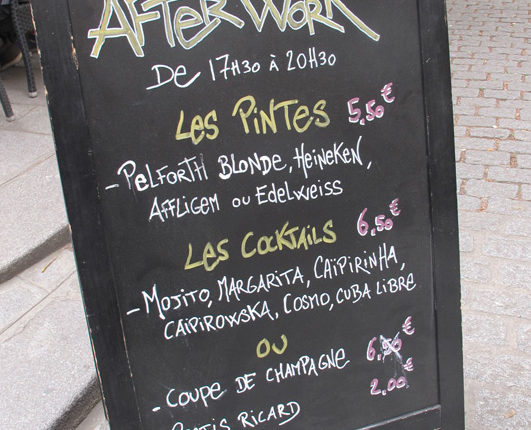 AFTER WORK
DE 17H30 À 20H30
LES PINTES 5,50€
- PELFORTH BLONDE, HEINEKEN,
AFFLIGEM OU EDELWEISS
LES COCKTAILS 6,50€
- MOJITO, MARGARITA, CAÏPIRINHA,
CAÏPIROWSKA, COSMO, CUBA LIBRE
OU
- COUPE DE CHAMPAGNE 6,50€
PASTIS RICARD 2,00€